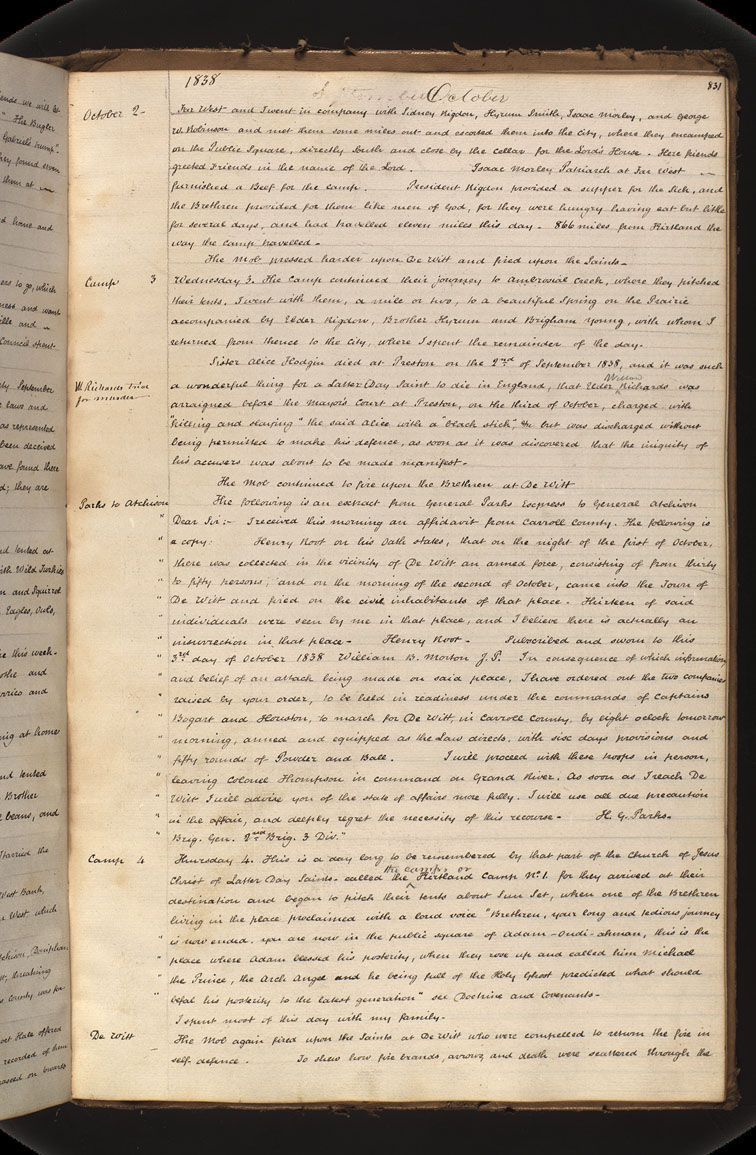 ends we will be
"The Bugler
Gabriels trump".
they found even
them at
d home and
ers to go, which
ness and want
ille and
Council spent
ly September
e laws and
as represented
been deceived
ave found there
d; they are
nd tented at
ith Wild Turkies
n and Squirrel
Eagles, Owls,
ie this week.
othe and
orries and
ing at home
nd tented
Brother
e beans, and
Started the
West Bank,
West which
chison, Doniphan
threatning
County was for
State offered
recorded of them
passed on towards
1838
September October
831
October 2
Far West and I went in company with Sidney Rigdon, Hyrum Smith, Isaac Morley, and George
W. Robinson and met them some miles out and escorted them into the City, where they encamped
on the Public Square, directly south and close by the cellar for the Lord's House. Here friends
greeted Friends in the name of the Lord. Isaac Morley Patriarch at Far West
furnished a Beef for the camp. President Rigdon provided a supper for the Sick, and
the Brethren provided for them like men of God, for they were hungry having eat but little
for several days, and had travelled eleven miles this day. 866 miles from Kirtland the
way the camp travelled.
The Mob pressed harder upon De Witt and fired upon the Saints.
Camp 3
Wednesday 3. The Camp continued their journey to Ambrosial Creek, where they pitched
their tents, I went with them, a mile or two, to a beautiful Spring on the Prairie
accompanied by Elder Rigdon, Brother Hyrum and Brigham Young, with whom I
returned from thence to the city, where I spent the remainder of the day.
Sister Alice Hodgin died at Preston on the 2nd of September 1838, and it was such
W. Richards tried
for murder
a wonderful thing for a Latter Day Saint to die in England, that Elder Willard Richards was
arraigned before the Mayor's Court at Preston, on the third of October, charged with
"killing and slaying" the said Alice with a "black stick", &c but was discharged without
being permitted to make his defence, as soon as it was discovered that the iniquity of
his accusers was about to be made manifest.
The Mob continued to fire upon the Brethren at De Witt
Parks to Atchison
The following is an extract from General Parks Express to General Atchison
" Dear Sir:- I received this morning an affidavit from Carroll County. The following is
" a copy: Henry Root on his Oath states, that on the night of the first of October,
" there was collected in the vicinity of De Witt an armed force, consisting of from thirty
" to fifty persons; and on the morning of the second of October, came into the Town of
" De Witt and fired on the civil inhabitants of that place. Thirteen of said
" individuals were seen by me in that place, and I believe there is actually an
" insurrection in that place. Henry Root. Subscribed and sworn to this
" 3rd day of October 1838 William B. Morton J.P. In consequence of which information
" and belief of an attack being made on said place, I have ordered out the two companies
" raised by your order, to be held in readiness under the commands of Captains
" " Bogart and Houston, to march for De Witt, in Carroll County, by eight oclock tomorrow
" morning, armed and equipped as the Law directs, with six days provisions and
" fifty rounds of Powder and Ball. I will proceed with these troops in person,
" leaving Colonel Thompson in command on Grand River. As soon as I reach De
" Witt I will advise you of the state of affairs more fully. I will use all due precaution
" in the affair, and deeply regret the necessity of this recourse. H. G. Parks.
" Brig. Gen. 2nd Brig. 3 Div."
Camp 4
Thursday 4. This is a day long to be remembered by that part of the Church of Jesus
Christ of Latter Day Saints called the the camp, or Kirtland Camp No. 1. for they arrived at their
destination and began to pitch their tents about Sun Set, when one of the Brethren
living in the place proclaimed with a loud voice "Brethren, your long and tedious journey
" is now ended, you are now in the public square of Adam-Ondi-ahman, this is the
" place where Adam blessed his posterity, when they rose up and called him Michael
" the Prince, the Arch Angel and he being full of the Holy Ghost predicted what should
" befal his posterity to the latest generation" see Doctrine and Covenants.
I spent most of this day with my family.
De Witt
The Mob again fired upon the Saints at De Witt who were compelled to return the fire in
self defence. To shew how fire brands, arrows, and death were scattered through the